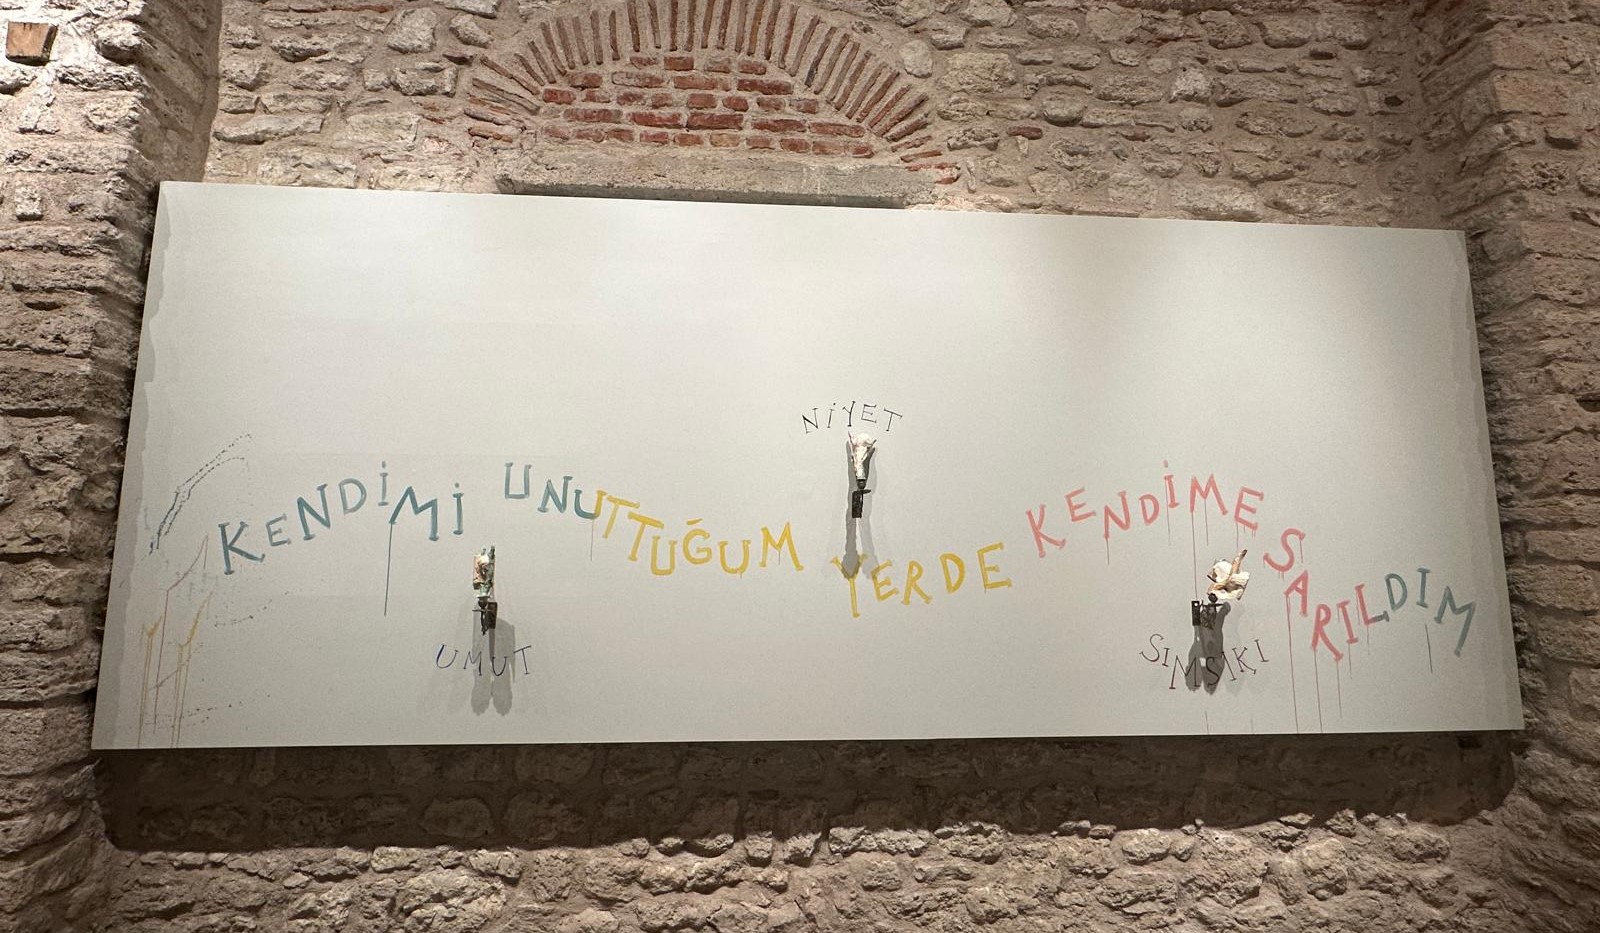 NİYET
KENDİMİ UNUTTUĞUM YERDE KENDİME SARILDIM
UMUT
SIMSIKI